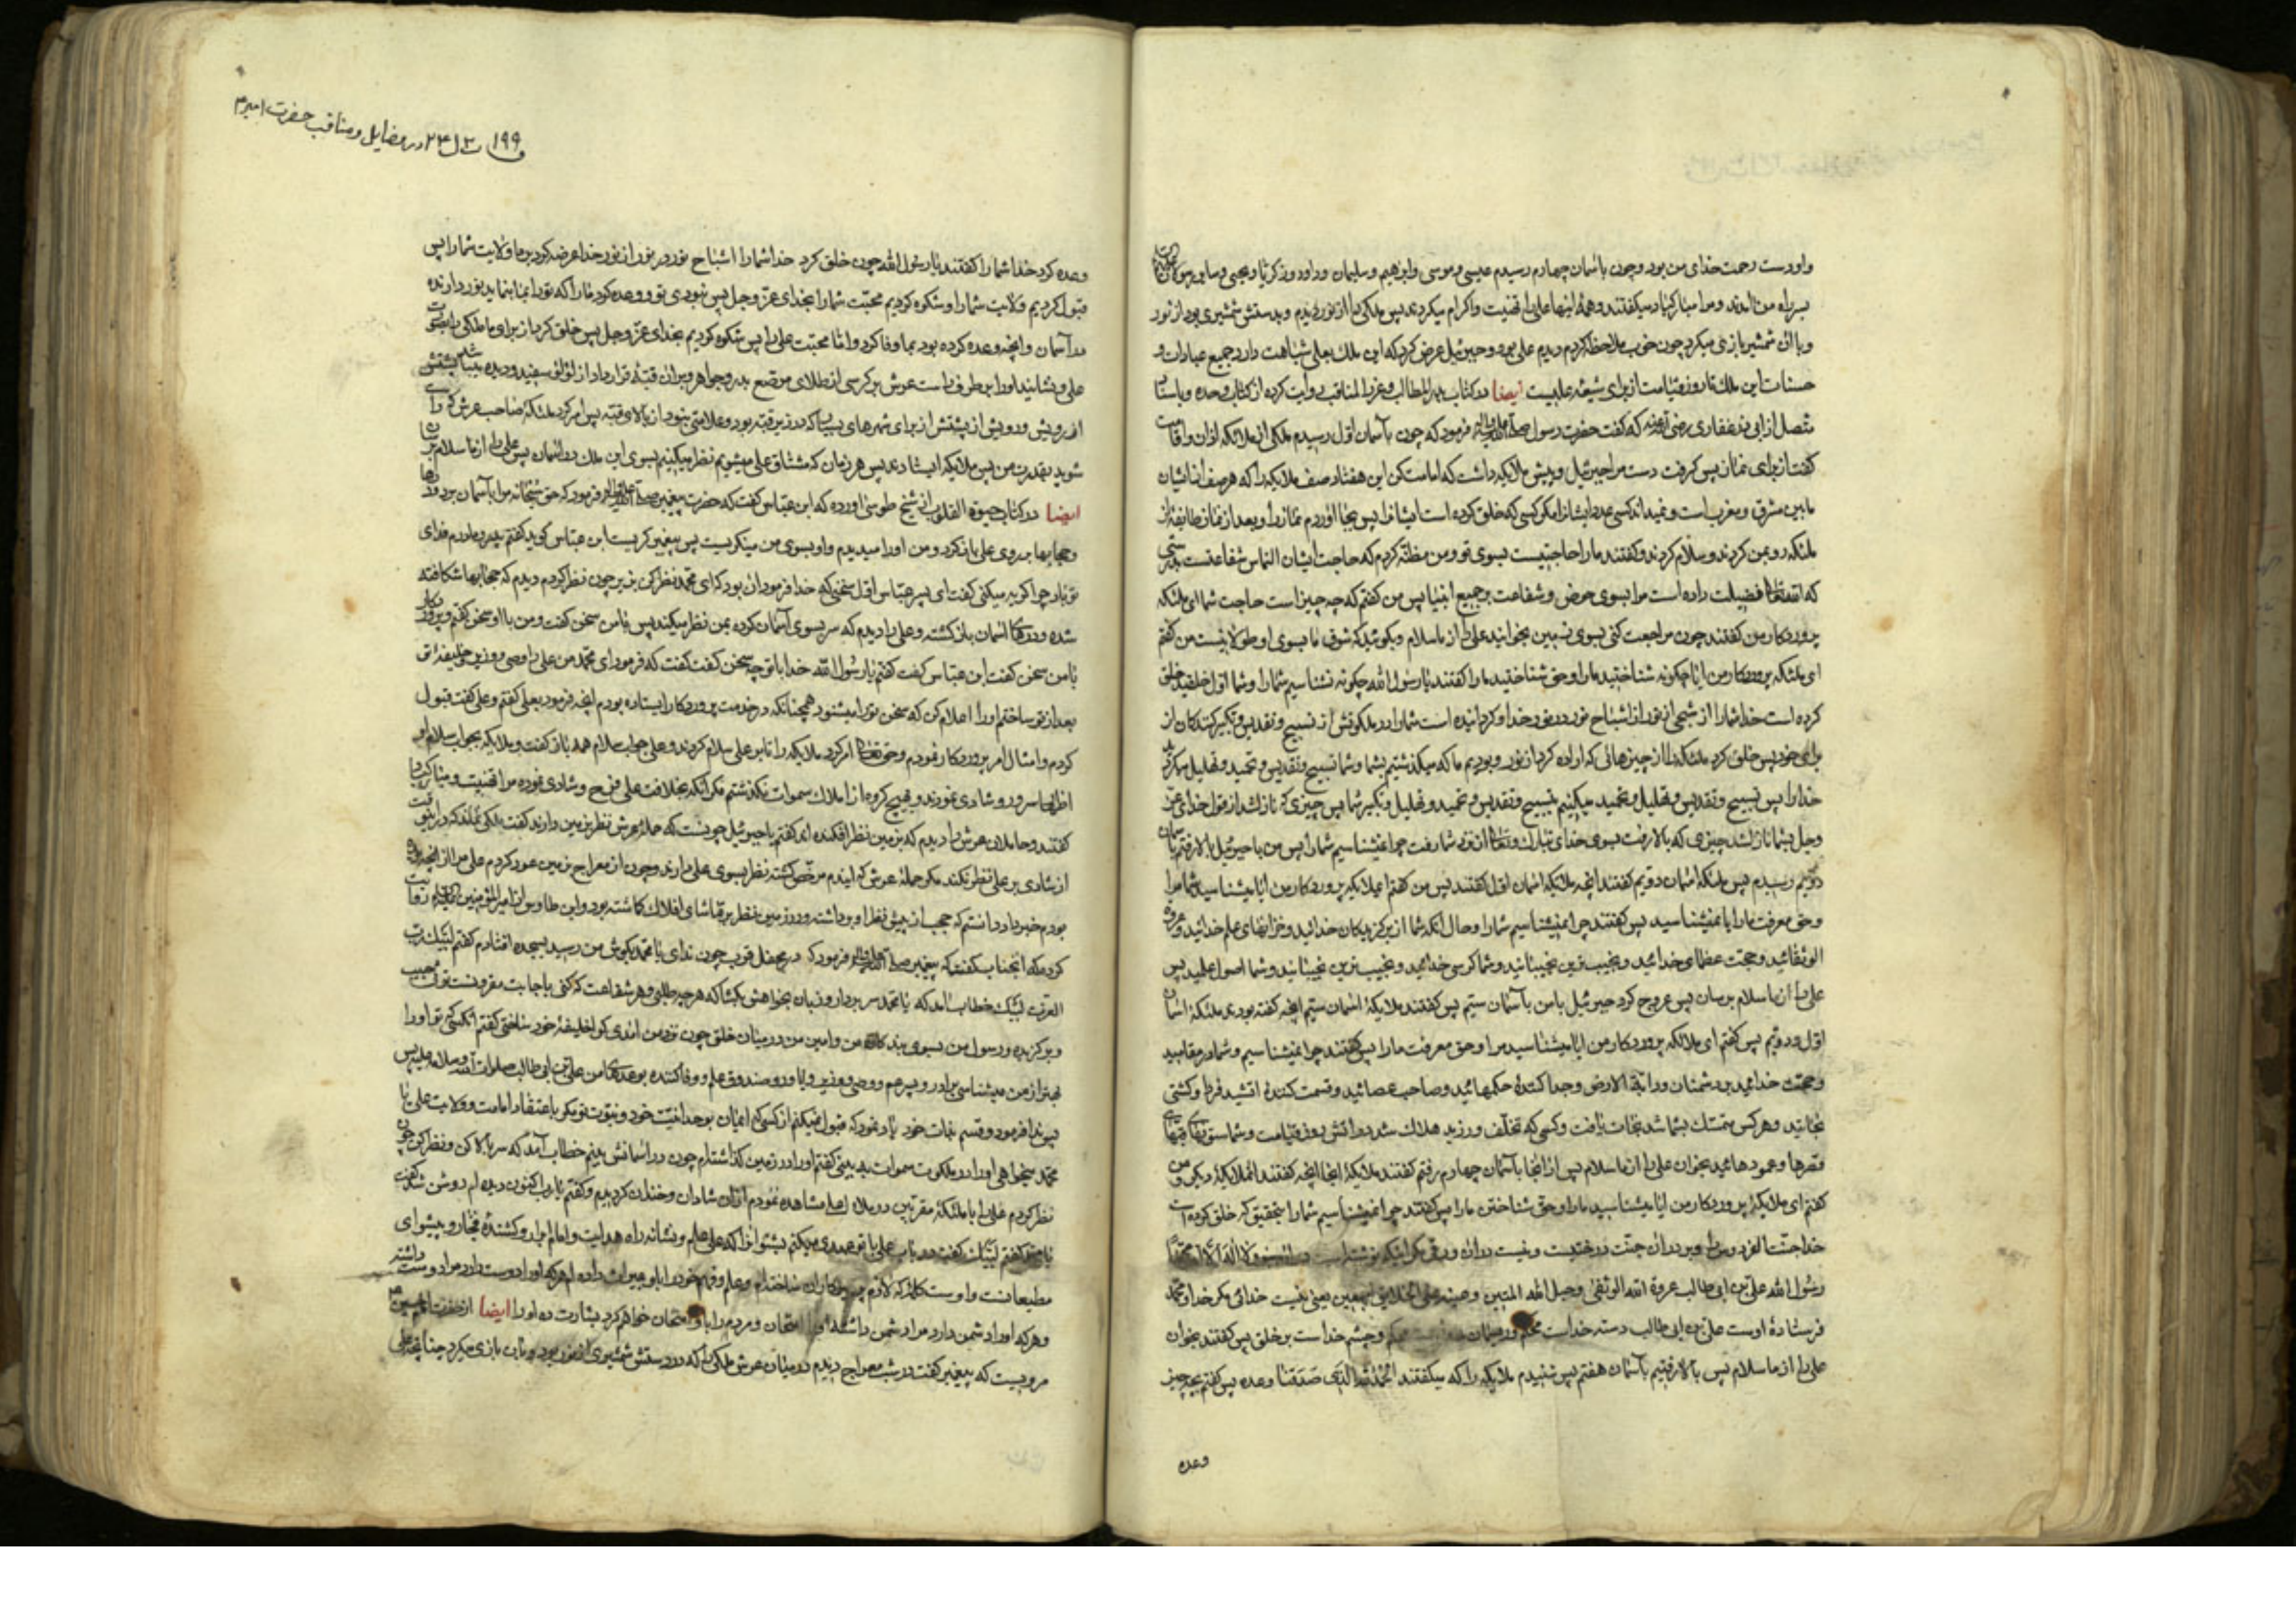 واوست رحمت خدای من بود و چون باسمان چهارم رسیدم عیسی و موسی و ابراهیم و سلیمان و داود و زکریا و یحیی و سایر
بسر راه من آمدند و مرا مبارکباد میگفتند و همه اینها علی را تهنیت و اکرام میکردند پس ملکی را از نور دیدم و بدستش شمشیری بود از نور
و با آن شمشیر بازی میکرد چون خوب ملاحظه کردم دیدم علی بود و جبرئیل عرض کرد که این ملک بعلی شباهت دارد جمیع عبادات و
حسنات این ملک تا روز قیامت از برای شیعه علیست ایضا در کتاب المطالب و المناقب روایت کرده از کتاب وحده و باسناد
متصل از ابی ذر غفاری که گفت حضرت رسول فرمود که چون بآسمان اول رسیدم ملکی از ملائکه اذان و اقامت
گفت از برای نماز پس گرفت دست مرا جبرئیل و پیش ملائکه داشت که امامت کن این هفتاد صف ملائکه را که هر صف از ایشان
مابین مشرق و مغرب است و نمیداند کسی عدد ایشانرا مگر کسی که خلق کرده است ایشانرا پس بجا آوردم نماز را و بعد از نماز طایفه از
ملئکه رو بمن کردند و سلام کردند و گفتند ما را حاجتیست بسوی تو و من مظنه کردم که حاجت ایشان التماس شفاعتست
که الله تعالی فضیلت داده است مرا بسوی حوض و شفاعت بر جمیع انبیا پس من گفتم که چه چیز است حاجت شما ای ملئکه
پروردگار من گفتند چون مراجعت کنی بسوی زمین بخوانید علی را از ما سلام و بگوئید که شوق ما بسوی او طولانیست من گفتم
ای ملئکه پروردگار من ایا چگونه شناختید ما را و حق شناختید ما را گفتند یا رسول الله چگونه نشناسیم شما را و شما اول خلقید خلق
کرده است خدا شما را از شبحی از نور از اشباح نور در نور خدا و گردانیده است شما را در ملکوتش از تسبیح و تقدیس و تکبیر کنندگان از
برای خود پس خلق کرد ملئکه را از چیزهائی که اراده کرد از نور و بودیم ما که میگذشتیم بشما و شما تسبیح و تقدیس و تحمید و تهلیل میکردید
خدا را پس تسبیح و تقدیس و تهلیل و تحمید میکنیم بتسبیح و تقدیس و تحمید و تهلیل و تکبیر شما پس چیزی که نازل شد از قول خدای عز
وجل بشما نازل شد چیزی که بالا رفت بسوی خدای تبارک و تعالی از نزد شما رفت چرا نمیشناسیم شما را پس من با جبرئیل بالا رفتم
دویم رسیدم پس ملئکه اسمان دویم گفتند انچه ملائکه اسمان اول گفتند پس من گفتم ایملائکه پروردگار من ایا میشناسید شما مرا
و حق معرفت ما را یا نمیشناسید پس گفتند چرا نمیشناسیم شما را و حال آنکه شما از برگزیدگان خدائید و خزانهای علم خدائید و عروة
الوثقائید و حجت عظمای خدائید و نجیب ترین نجیبانید و شما کرسی خدائید و نجیب ترین نجیبانید و شما اصول علمید پس
علی را از ما سلام برسان پس عروج کرد جبرئیل با من بآسمان سیم پس گفتند ملائکه اسمان سیم انچه گفته بودند ملئکه اسمان
اول و دویم پس گفتم ای ملائکه پروردگار من ایا میشناسید مرا و حق معرفت ما را پس گفتند چرا نمیشناسیم و شما در مقامید
و حجت خدائید بر دشمنان و دابة الارض و جدا کننده حکمهائید و صاحب عصائید و قسمت کننده اتشید فردا و کشتی
نجاتید و هر کس متمسک بشما شد نجات یافت و کسی که تخلف ورزید هلاک شد در اتش روز قیامت و شما ستونهای
قصرها و عمودهائید بخوان علی را از ما سلام پس از آنجا بآسمان چهارم رفتم گفتند ملائکه انجا انچه گفتند املائکه دیگر و من
گفتم ای ملائکه پروردگار من ایا میشناسید ما را و حق شناختن ما را پس گفتند چرا نمیشناسیم شما را بتحقیق که خلق کرده است
خدا جنت الفردوس را و بر در آن جنت درختیست و نیست در آن ورقی مگر اینکه نوشته است در لا اله الا الله محمد
رسول الله علی بن ابی طالب عروة الله الوثقی و حبل الله المتین و عینه علی الخلایق اجمعین یعنی نیست خدائی مگر خدا و محمد
فرستاده اوست علی بن ابی طالب دسته خداست محکم و ریسمان محکم و چشم خداست بر خلق پس گفتند بخوان
علی را از ما سلام پس بالا رفتیم بآسمان هفتم پس شنیدم ملائکه را که میگفتند الحمد لله الذی صدقنا وعده پس گفتم بچه چیز
وعده
۱۹۹ در فضایل و مناقب حضرت امیر
وعده کرد خدا شما را گفتند یا رسول الله چون خلق کرد خدا شما را اشباح نور در نور از نور خدا عرضه کرد بر ما ولایت شما را پس
قبول کردیم ولایت شما را و شکوه کردیم محبت شما را بخدای عز وجل پس بودی تو و وعده کرد ما را که تو را بما بنماید نزد دارنده
در آسمان و انچه وعده کرده بود بما وفا کرد و اما محبت علی را پس شکوه کردیم بخدای عز وجل پس خلق کرد از برای ما ملکی را بصورت
علی و نشانید او را بر طرف راست عرش بر کرسی از طلای مرصع بدر و جواهر و بر آن قبه قرار داد از لؤلؤ سفید
شوید بقدرت من پس ملائکه ایستادند پس هر زمان که مشتاق علی میشویم نظر میکنیم بسوی این ملک در آسمان پس علی را از ما سلام برسان
ایضا در کتاب حیوة القلوب از شیخ طوسی آورده که ابن عباس گفت که حضرت پیغمبر فرمود که حق سبحانه مرا بآسمان برد و درها
و حجابها بر روی علی باز کرد و من او را میدیدم و او بسوی من مینگریست پس پیغمبر گریست ابن عباس گوید گفتم پدر و مادرم فدای
تو باد چرا گریه میکنی گفت ای پسر عباس اول سخنی که خدا فرمود آن بود که ای محمد نظر کن بزیر چون نظر کردم دیدم که حجابها شکافته
شده و درهای اسمان باز گشته و علی را دیدم که سر بسوی آسمان کرده بمن نظر میکند پس با من سخن گفت و من با او سخن گفتم و پروردگار
با من سخن گفت ابن عباس گفت گفتم یا رسول الله خدا با تو چه سخن گفت گفت که فرمود ای محمد من علی را وصی و وزیر و خلیفه تو
بعد از تو ساختم او را اعلام کن که سخن تو را میشنود همچنانکه در خدمت پروردگار ایستاده بودم انچه فرمود بعلی گفتم و علی گفت قبول
کردم و امتثال امر پروردگار نمودم و حق تعالی امر کرد ملائکه را تا بر علی سلام کردند و علی جواب سلام همه باز گفت و ملائکه بجواب سلام او
اظهار سرور و شادی نمودند و بهیچ گروه از املاک سموات نگذشتم مگر آنکه بخلافت علی فرح و شادی نموده مرا تهنیت و مبارکباد
گفتند و حاملان عرش را دیدم که بزمین نظر افکنده اند گفتم یا جبرئیل چونست که حمله عرش نظر بزمین دارند گفت ملکی نماند که در اینوقت
از شادی بر علی نظر نکند مگر حمله عرش که ایندم مرخص گشته نظر بسوی علی دارند و چون از معراج بزمین عود کردم علی مرا از انچه
بودم خبر داد دانستم که حجب از پیش نظر او برداشته و در زمین نظر بر تماشای افلاک گماشته بود و ابن طاوس از امیر المؤمنین روایت
کرده که انجناب گفت که پیغمبر فرمود که در محفل قرب چون ندای یا محمد بگوش من رسید بسجده افتادم گفتم لبیک رب
العزت لبیک خطاب آمد که یا محمد سر بردار و زبان بخواهش بگشا که هر چه طلبی و هر شفاعت که کنی باجابت مقرونست تو حبیب
و برگزیده و رسول من بسوی بندگان من و امین من در میان خلق چون نزد من آمدی که را خلیفه خود ساختی گفتم آنکسی که تو او را
بهتر از من میشناسی برادر و پسر عم و وصی و وزیر و یاور و صندوق علم و وفا کننده بوعدهای من علی بن ابی طالب صلوات الله و سلامه علیه پس
پس ندا فرمود و قسم بذات خود یاد نمود که قبول نمیکنم از کسی که ایمان بوحدانیت خود و نبوت تو مگر باعتقاد امامت و ولایت علی یا
محمد میخواهی او را در ملکوت سموات بینی گفتم او را در زمین گذاشته ام چون در آسمانش بینم خطاب آمد که سر بالا کن و نظر کن چون
نظر کردم علی را با ملئکه مقربین در ملاء اعلی مشاهده نمودم از آن شادان و خندان گردیدم و گفتم یا رب اکنون دیده ام روشن شد گفت
یا محمد گفتم لبیک گفت در باب علی با تو عهدی میکنم بشنو آنرا که علی علم و نشانه راه هدایت و امام ابرار و کشنده فجار و پیشوای
مطیعانست و اوست کلمه که لازم پرهیزکاران ساخته ام و علم و فهم خود را باو میراث داده ام هر که او را دوست دارد مرا دوست داشته
و هر که او را دشمن دارد مرا دشمن داشته او را امتحان و مردم را باو امتحان خواهم کرد بشارت ده او را ایضا از حضرت امام حسین
مرویست که پیغمبر گفت در شب معراج دیدم در میان عرش ملکی را که در دستش شمشیری از نور بود و بآن بازی میکرد چنانچه علی